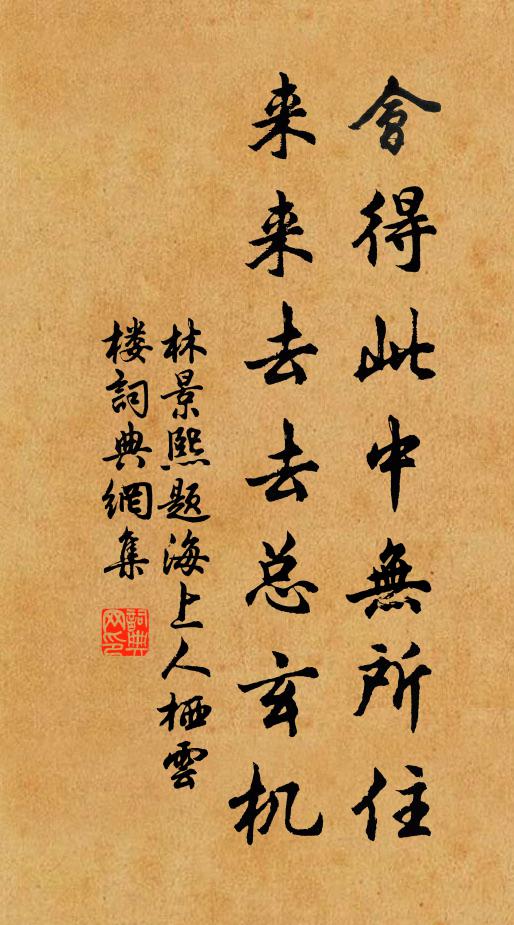 會得此中無所住
来来去去总玄机
林景熙题海上人栖雲
楼詞典網集
詞典网印